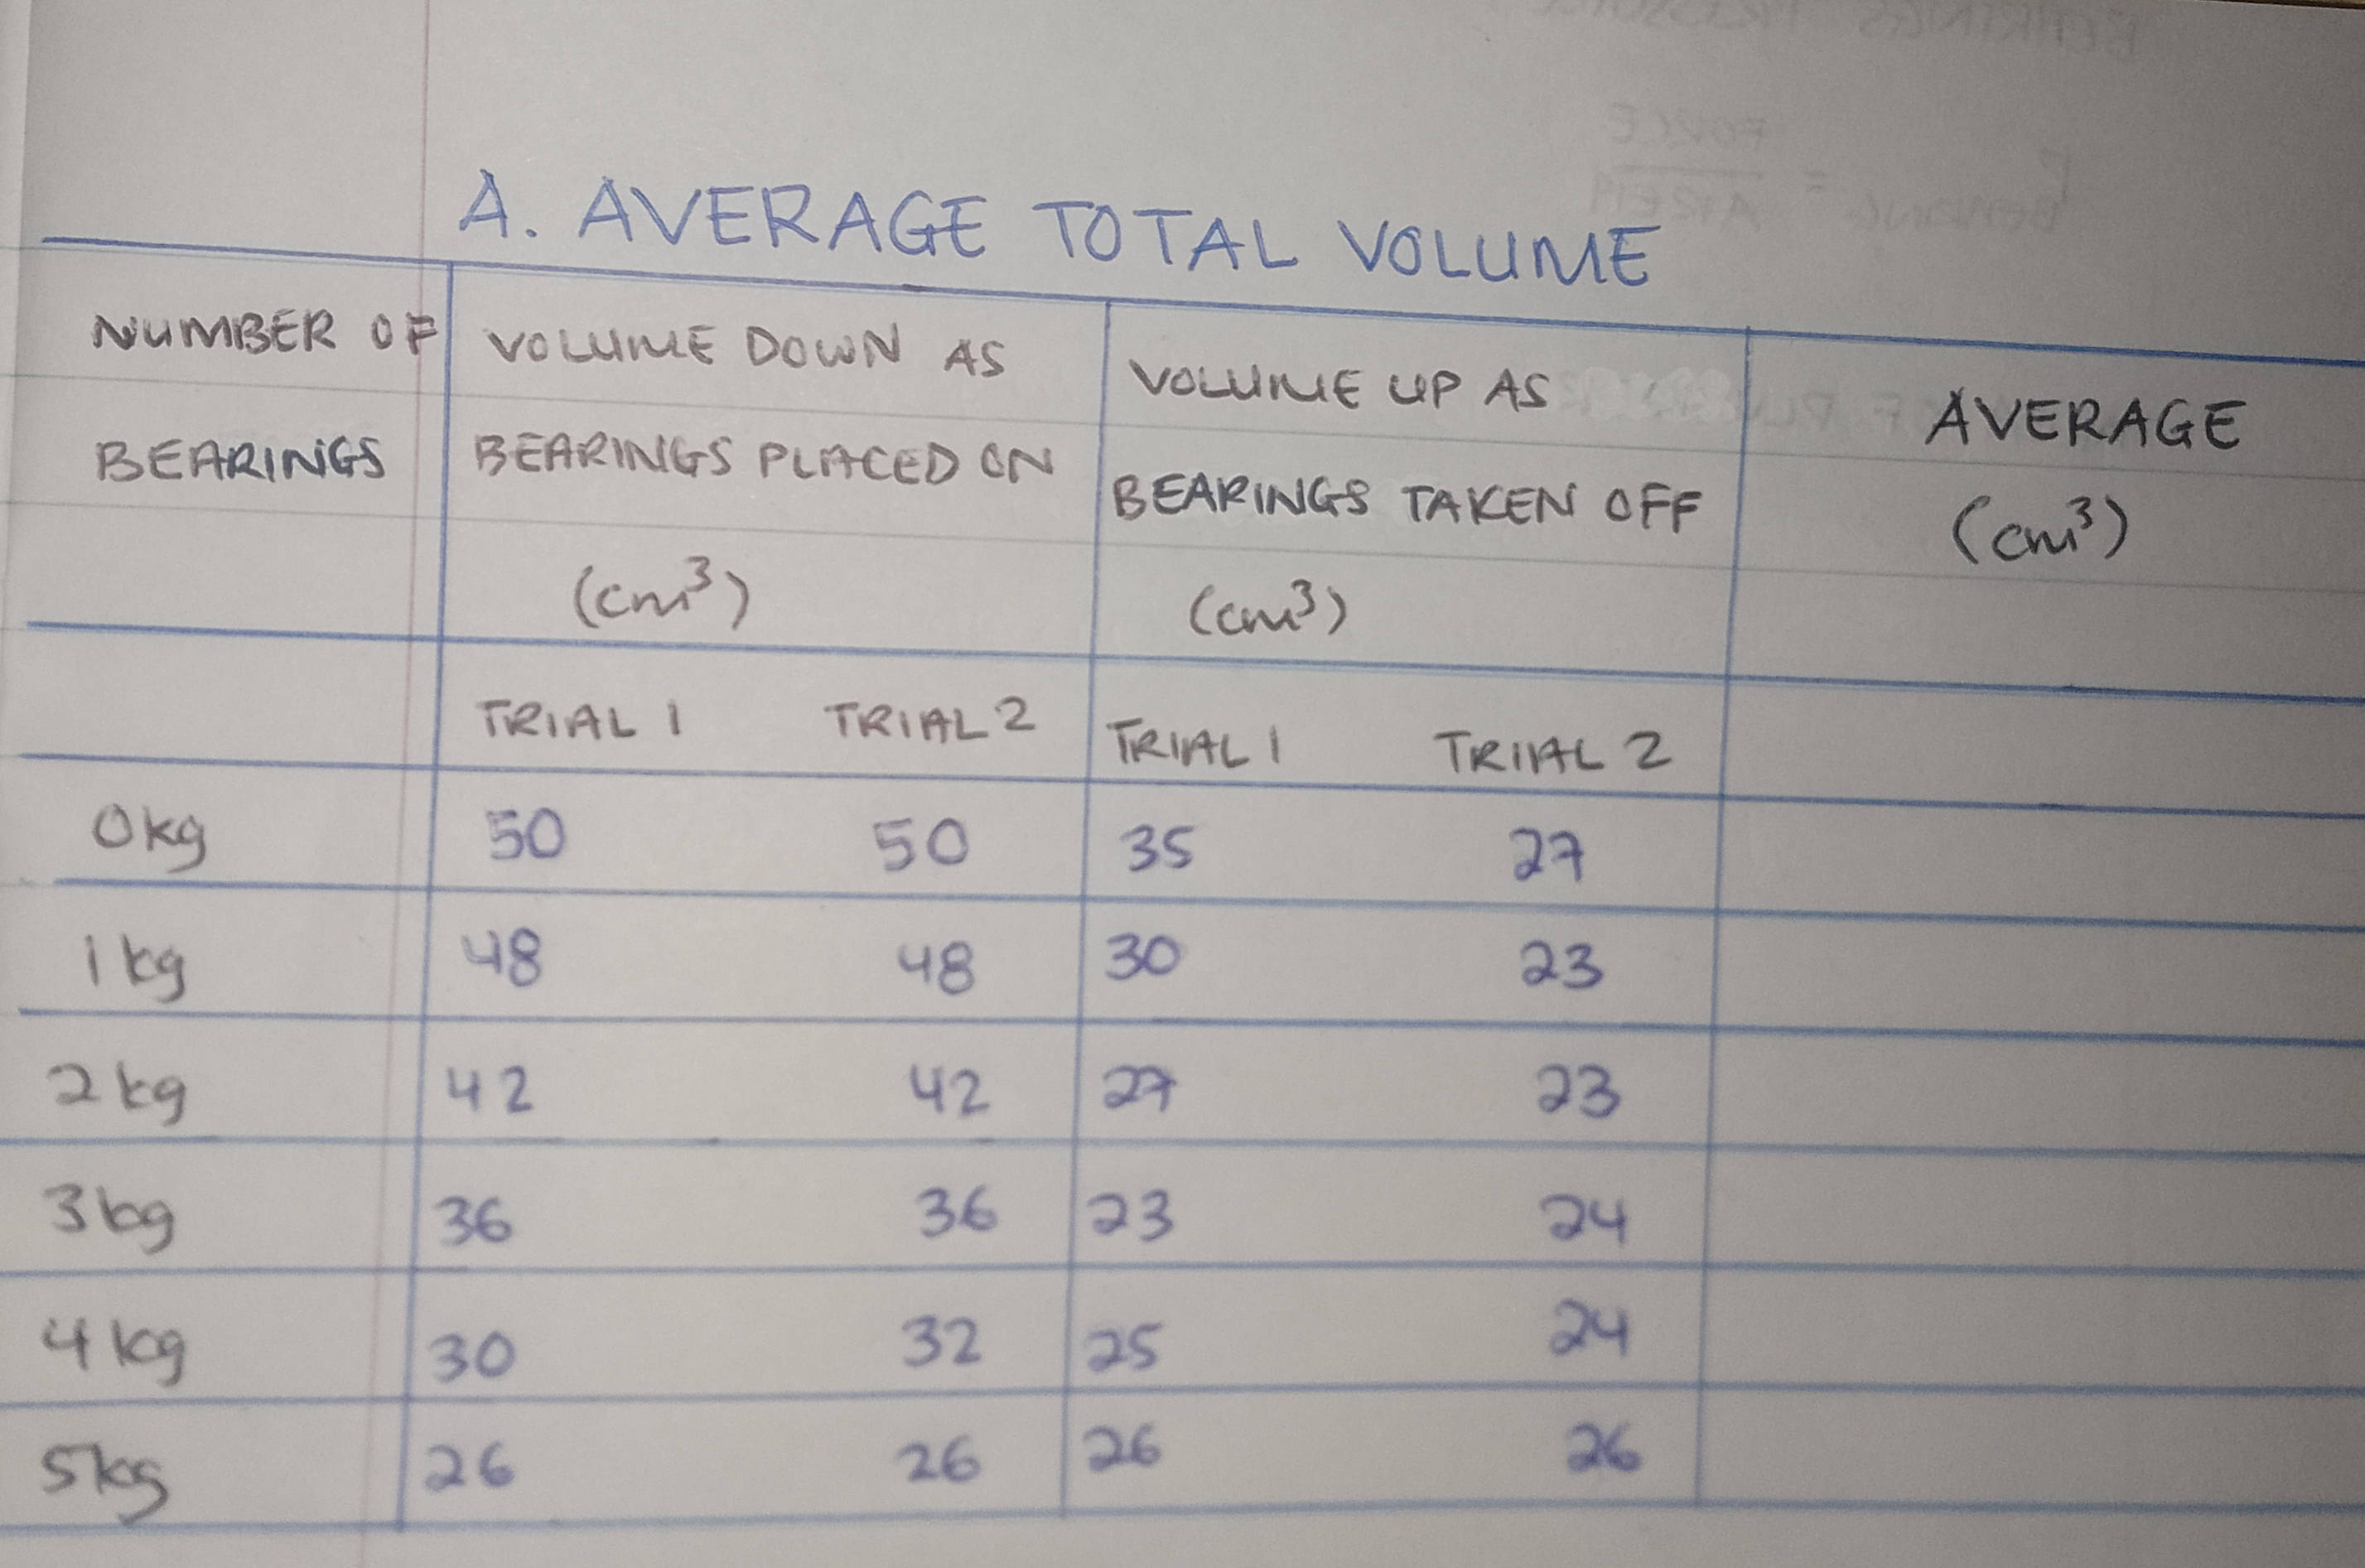 A. AVERAGE TOTAL VOLUME
NUMBER OF
BEARINGS
VOLUME DOWN AS
BEARINGS PLACED ON
(cm³)
VOLUME UP AS
BEARINGS TAKEN OFF
(cm³)
AVERAGE
(cm³)
TRIAL 1 TRIAL 2 TRIAL 1 TRIAL 2
0kg 50 50 35 27
1kg 48 48 30 23
2kg 42 42 27 23
3kg 36 36 23 24
4kg 30 32 25 24
5kg 26 26 26 26